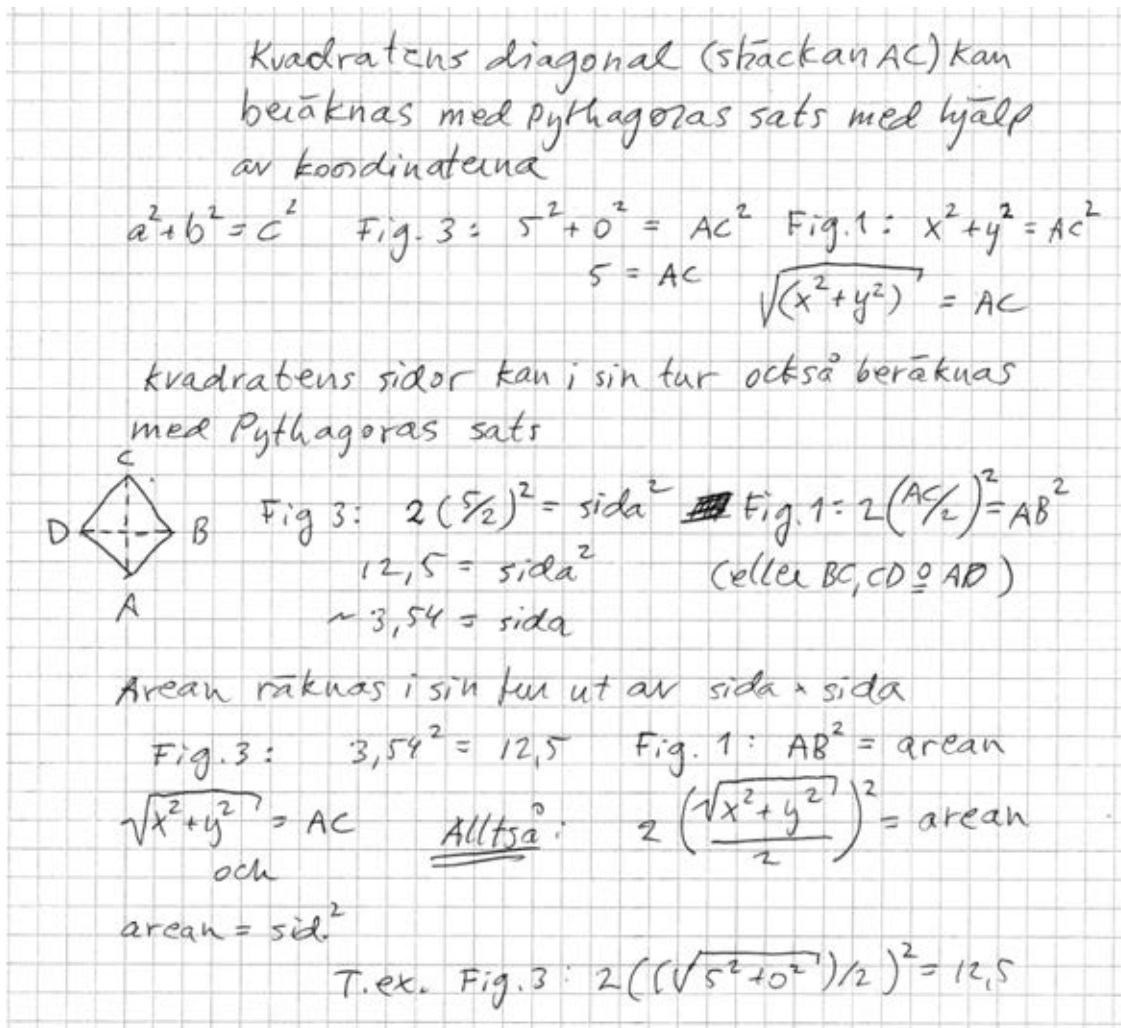 Kvadratens diagonal (sträckan AC) kan
beräknas med Pythagoras sats med hjälp
av koordinaterna
a² + b² = c² Fig. 3: 5² + 0² = AC² Fig. 1: x² + y² = AC²
5 = AC √(x² + y²) = AC
kvadratens sidor kan i sin tur också beräknas
med Pythagoras sats
C
D B
A
Fig 3: 2(5/2)² = sida² Fig. 1: 2(AC/2)² = AB²
12,5 = sida² (eller BC, CD o AD)
~ 3,54 = sida
Arean räknas i sin tur ut av sida × sida
Fig. 3: 3,54² = 12,5 Fig. 1: AB² = arean
√x² + y² = AC Alltså: 2(√x² + y² / 2)² = arean
och
arean = sid.²
T.ex. Fig. 3: 2((√5² + 0²)/2)² = 12,5